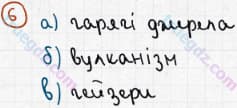 6 а) гарячі джерела
б) вулканізм
в) гейзери